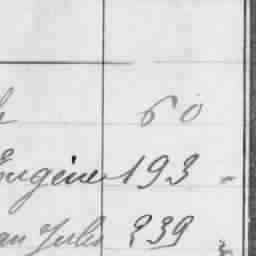 60
Eugène 193 -
an Jules 239